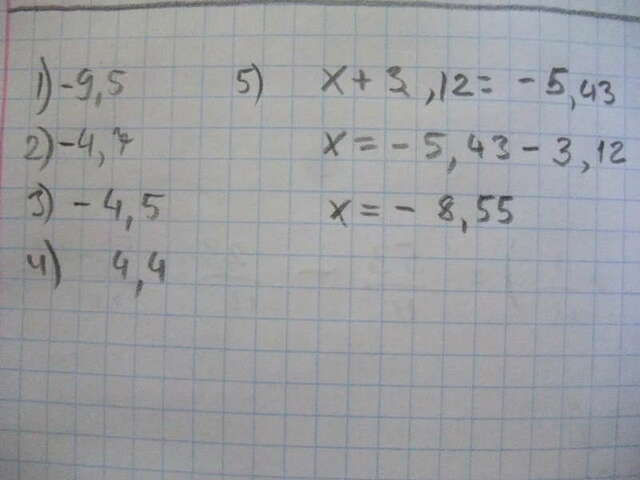 1) -9,5
2) -4,7
3) - 4,5
4) 4,4
5) x + 3,12 = - 5,43
x = - 5,43 - 3,12
x = - 8,55